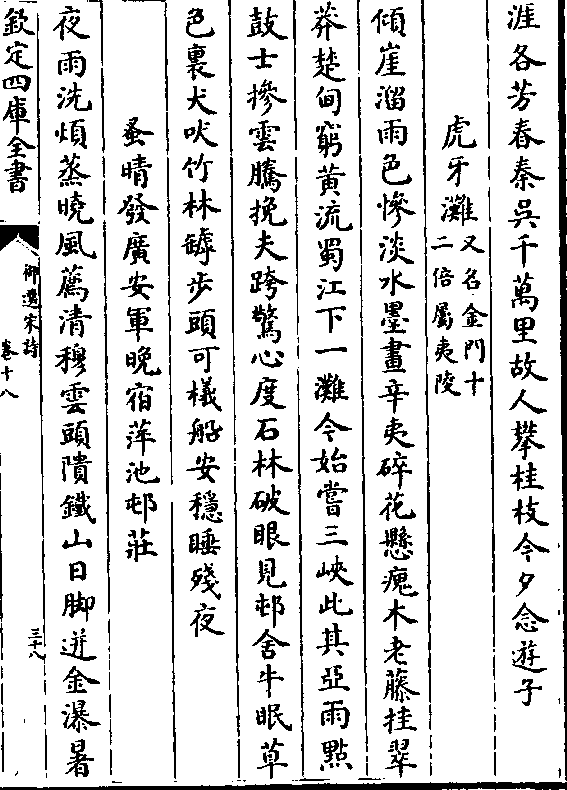 涯各芳春秦吳千萬里故人攀桂枝今夕念遊子
虎牙灘又名金門十
二倍屬夷陵
傾崖溜雨色慘淡水墨畫辛夷碎花懸瘣木老藤挂翠
莽楚甸窮黃流蜀江下一灘今始嘗三峽此其亞雨點
鼓士摻雲騰挽夫跨驚心度石林破眼見邨舍牛眠草
色裏犬吠竹林罅步頭可檥船安穩睡殘夜
蚤晴發廣安軍晚宿萍池邨莊
夜雨洗煩蒸曉風薦清穆雲頭隤鐵山日脚迸金瀑暑
欽定四庫全書
御選宋詩
卷十八
三十八